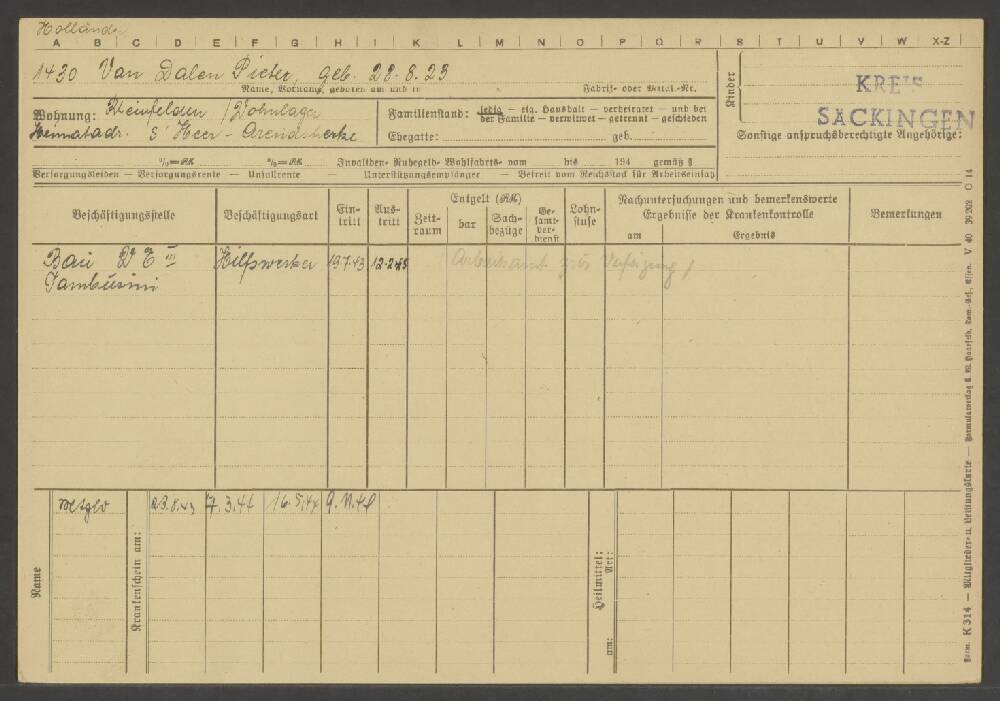 Holländer
A B C D E F G H I K L M N O P Q R S T U V W X-Z
1430 Van Dalen Pieter, geb. 28.8.23
Name, Vorname, geboren am und in
Fabrik- oder Kenn.-Nr.
Kinder
KREIS
SÄCKINGEN
Wohnung: Rheinfelden / Wohnlager
Heimatadr. s' Heer - Arendskerke
Familienstand: ledig — eig. Haushalt — verheiratet — und bei
der Familie — verwitwet — getrennt — geschieden
Ehegatte: geb.
Sonstige anspruchsberechtigte Angehörige:
%=RM %=RM Invaliden- Ruhegeld- Wohlfahrts- vom bis 194 gemäß §
Versorgungsleiden — Versorgungsrente — Unfallrente — Unterstützungsempfänger — Befreit vom Reichsstock für Arbeitseinsatz
Beschäftigungsstelle
Beschäftigungsart
Ein-
tritt
Aus-
tritt
Entgelt (RM)
Zeit-
raum
bar
Sach-
bezüge
Ge-
samt-
ver-
dienst
Lohn-
stufe
Nachuntersuchungen und bemerkenswerte
Ergebnisse der Krankenkontrolle
am
Ergebnis
Bemerkungen
Bau D E III Hilfswerker 19.7.43 12.2.45 (Arbeitsamt zur Verfügung)
Tambusini
Name
Krankenschein am:
23.8.43 7.3.44 16.5.44 9.11.44
Heilmittel:
Art:
am:
Form. K 314 — Mitglieder- u. Leistungskarte — Formularverlag G. W. Baarfeld, Kom.-Ges., Essen. V 40 39 202 O 14